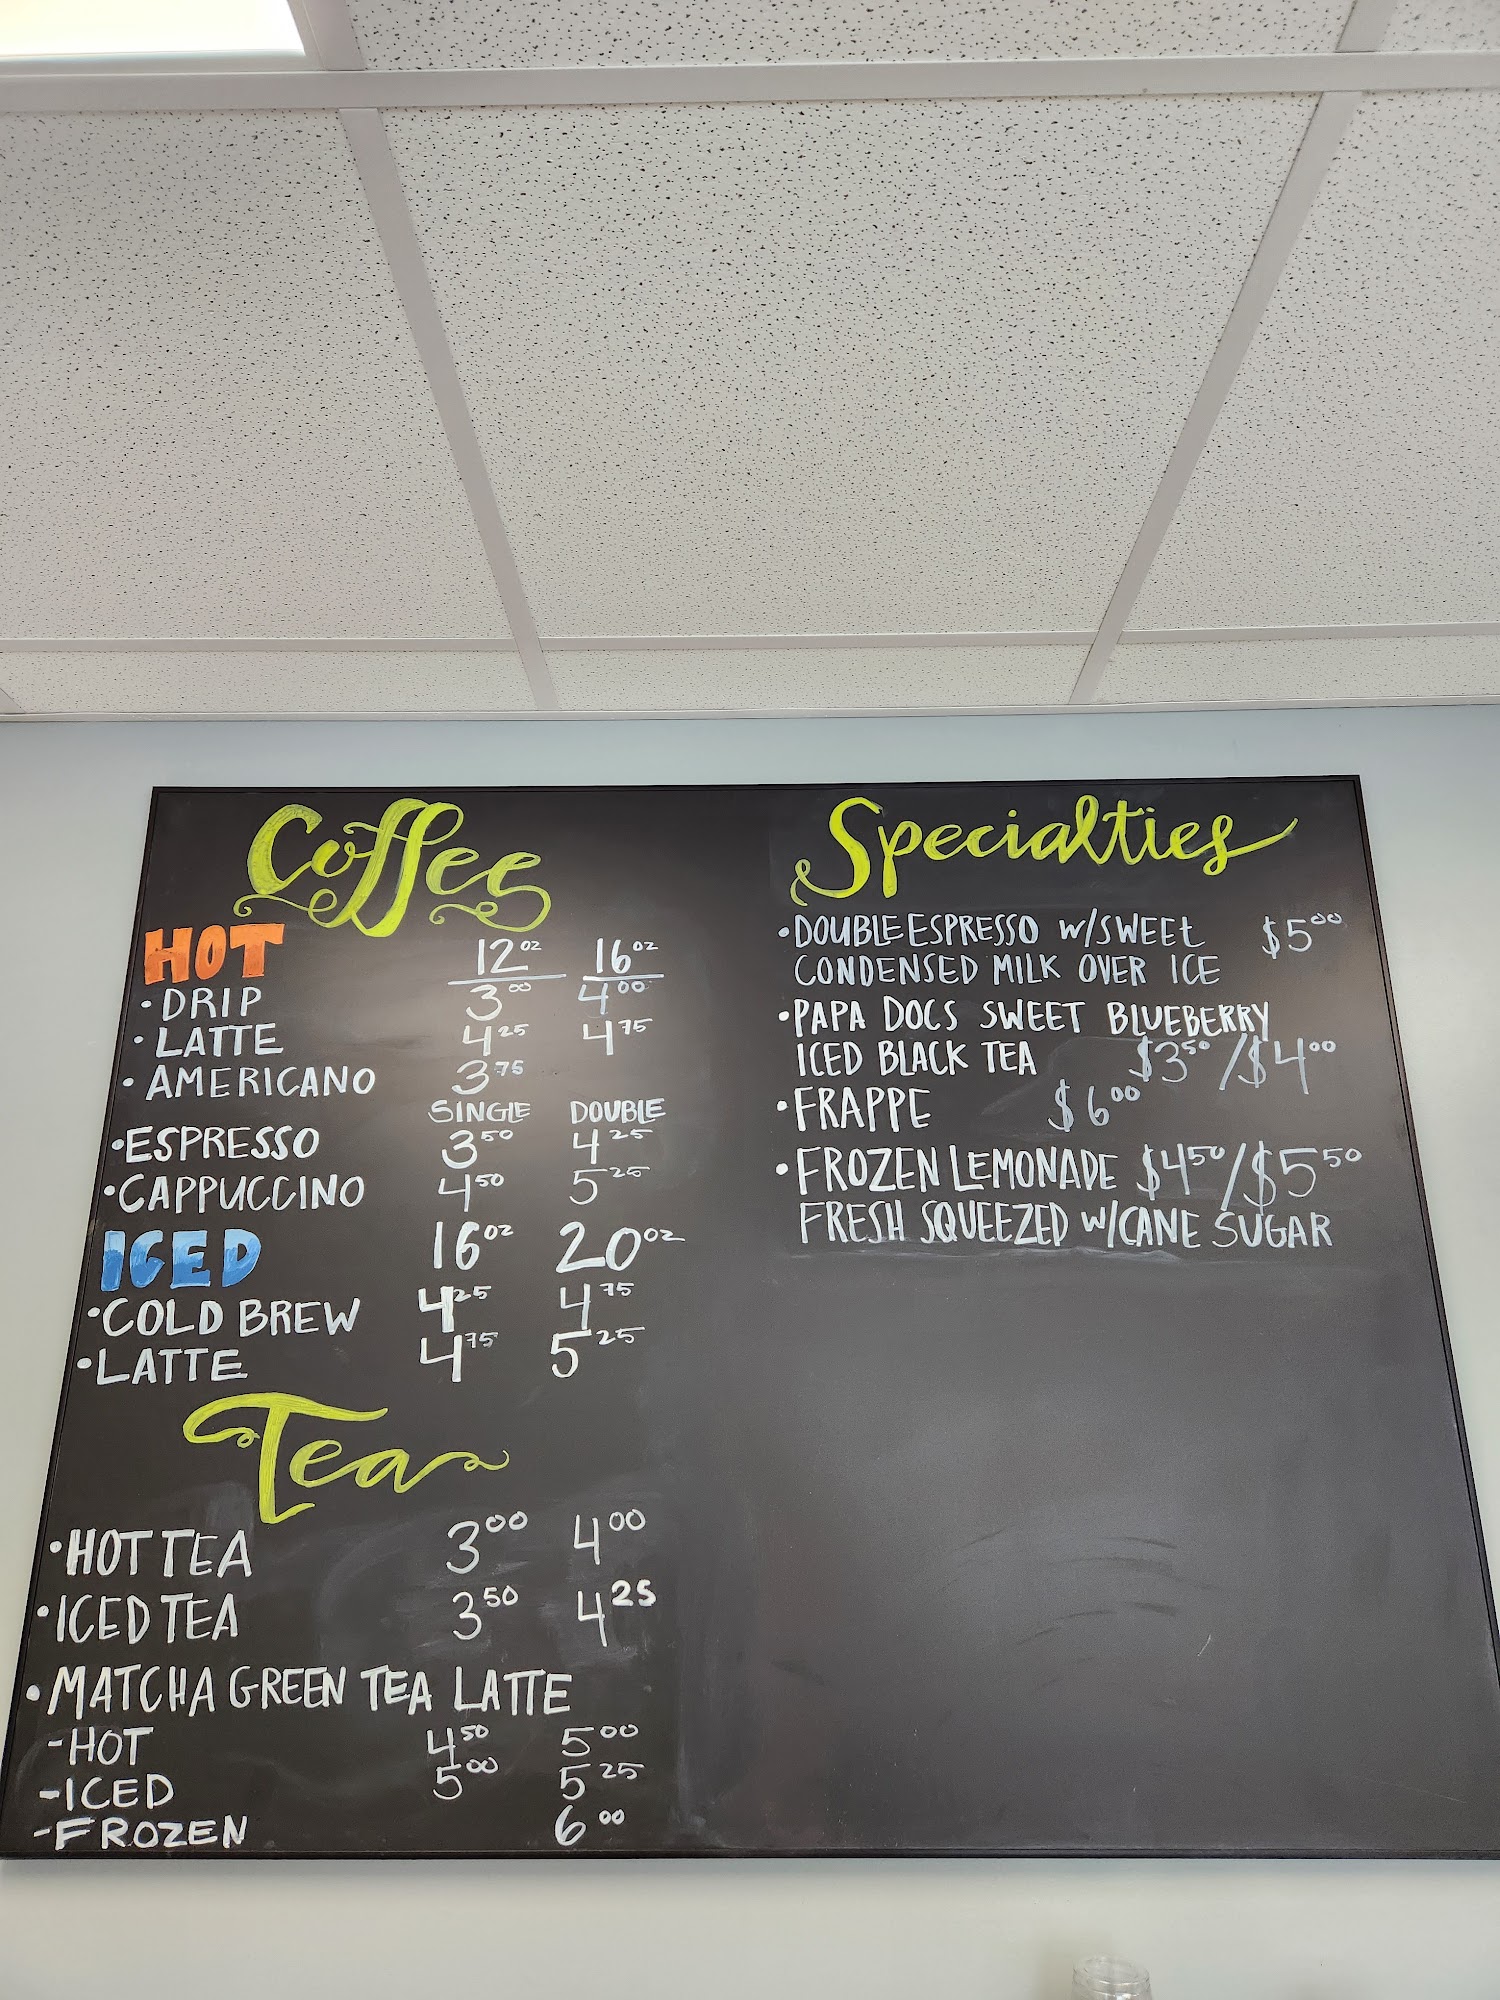 Coffee
HOT 12oz 16oz
• DRIP 3.00 4.00
• LATTE 4.25 4.75
• AMERICANO 3.75
SINGLE DOUBLE
• ESPRESSO 3.50 4.25
• CAPPUCCINO 4.50 5.25
ICED 16oz 20oz
• COLD BREW 4.25 4.75
• LATTE 4.75 5.25
Tea
• HOT TEA 3.00 4.00
• ICED TEA 3.50 4.25
• MATCHA GREEN TEA LATTE
- HOT 4.50 5.00
- ICED 5.00 5.25
- FROZEN 6.00
Specialties
• DOUBLE ESPRESSO W/SWEET $5.00
CONDENSED MILK OVER ICE
• PAPA DOCS SWEET BLUEBERRY
ICED BLACK TEA $3.50/$4.00
• FRAPPE $6.00
• FROZEN LEMONADE $4.50/$5.50
FRESH SQUEEZED W/CANE SUGAR